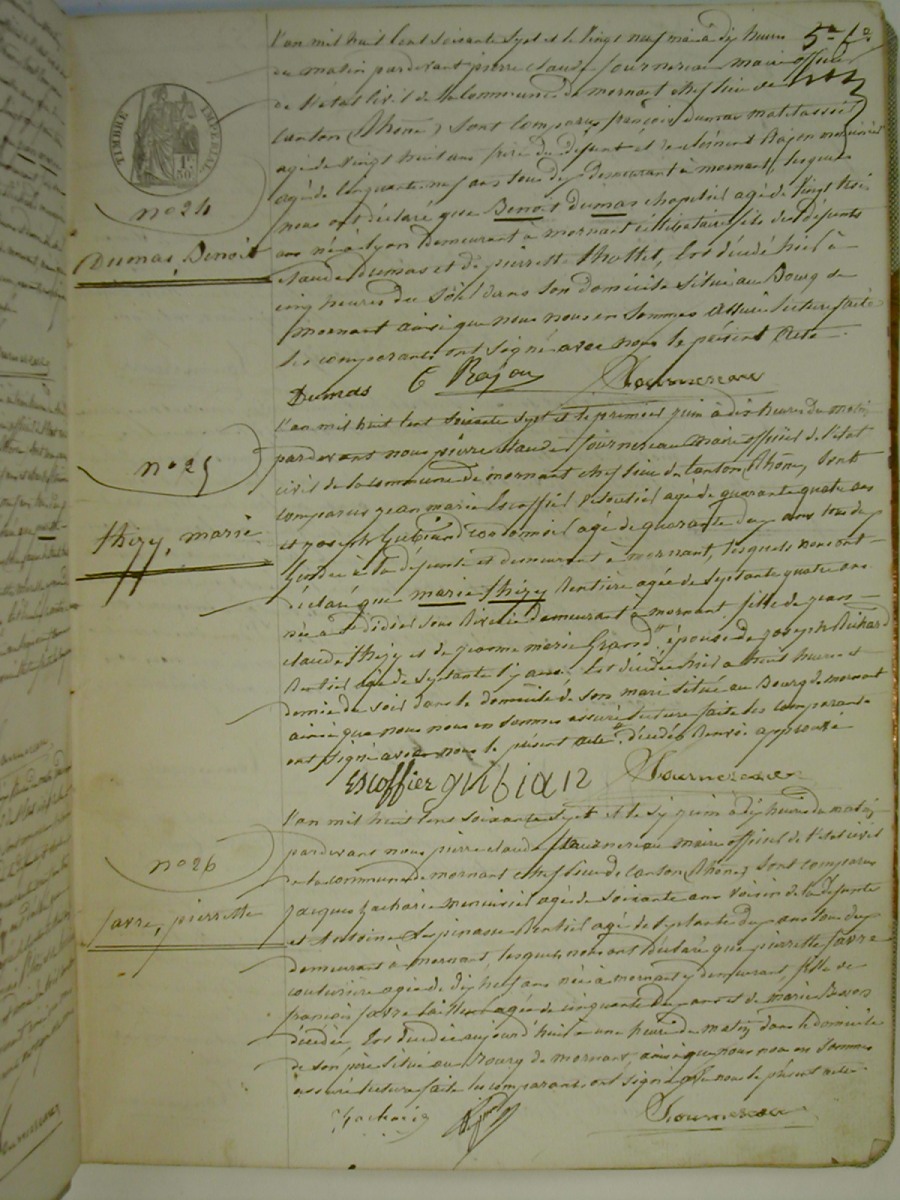 5e f°
TIMBRE IMPERIAL
1F 50C
n° 24
Dumas, Benoit
L'an mil huit cent soixante sept et le vingt neuf mai à dix heures
du matin pardevant pierre claude fournereau maire officier
de l'état civil de la commune de mornant chef lieu de
canton (Rhône) sont comparus françois dumas matelassier
agé de vingt huit ans frère du défunt et Rajon menuisier
agé de cinquante neuf ans tous deux demeurant à mornant, lesquels
nous ont déclaré que Benoit dumas chapelier agé de vingt trois
ans né à Lyon demeurant à mornant célibataire fils des défunts
claude Dumas et de pierrette thollet, est décédé hier à
cinq heures du soir dans son domicile situé au Bourg de
mornant ainsi que nous nous en sommes assuré lecture faite
les comparants ont signé avec nous le présent acte
Dumas C Rajon Fournereau
n° 25
thizy, marie
L'an mil huit cent soixante sept et le premier juin à dix heures du matin
pardevant nous pierre claude fournereau maire officier de l'état
civil de la commune de mornant chef lieu de canton (Rhône) sont
comparus jean marie Escoffier agé de quarante quatre ans
et joseph Gubian cordonnier agé de quarante deux ans tous deux
gendre à la défunte et demeurant à mornant, lesquels nous ont
déclaré que marie thizy Rentière agée de septante quatre ans
née à St didier sous Riverie demeurant à mornant fille de jean
claude thizy et de jeanne marie Grand, épouse de joseph Richard
Rentier agé de septante ans est décédée hier à huit heures et
demie du soir dans le domicile de son mari situé au Bourg de mornant
ainsi que nous nous en sommes assuré lecture faite les comparants
ont signé avec nous le présent acte décédés Renvoi approuvé
Escoffier gubian Fournereau
n° 26
favre, pierrette
L'an mil huit cent soixante sept et le six juin à dix heures du matin
pardevant nous pierre claude fournereau maire officier de l'état civil
de la commune de mornant chef lieu de canton (Rhône) sont comparus
Jacques Zacharie menuisier agé de soixante ans voisin de la défunte
et Antoine Lespinasse Rentier agé de septante deux ans tous deux
demeurant à mornant lesquels nous ont déclaré que pierrette favre
couturière agée de dix neuf ans née à mornant y demeurant fille de
françois favre agé de cinquante ans et de marie
décédée, est décédée aujourd'hui à une heure du matin dans le domicile
de son père situé au Bourg de mornant, ainsi que nous nous en sommes
assuré lecture faite les comparants ont signé avec nous le présent acte
Zacharie Fournereau